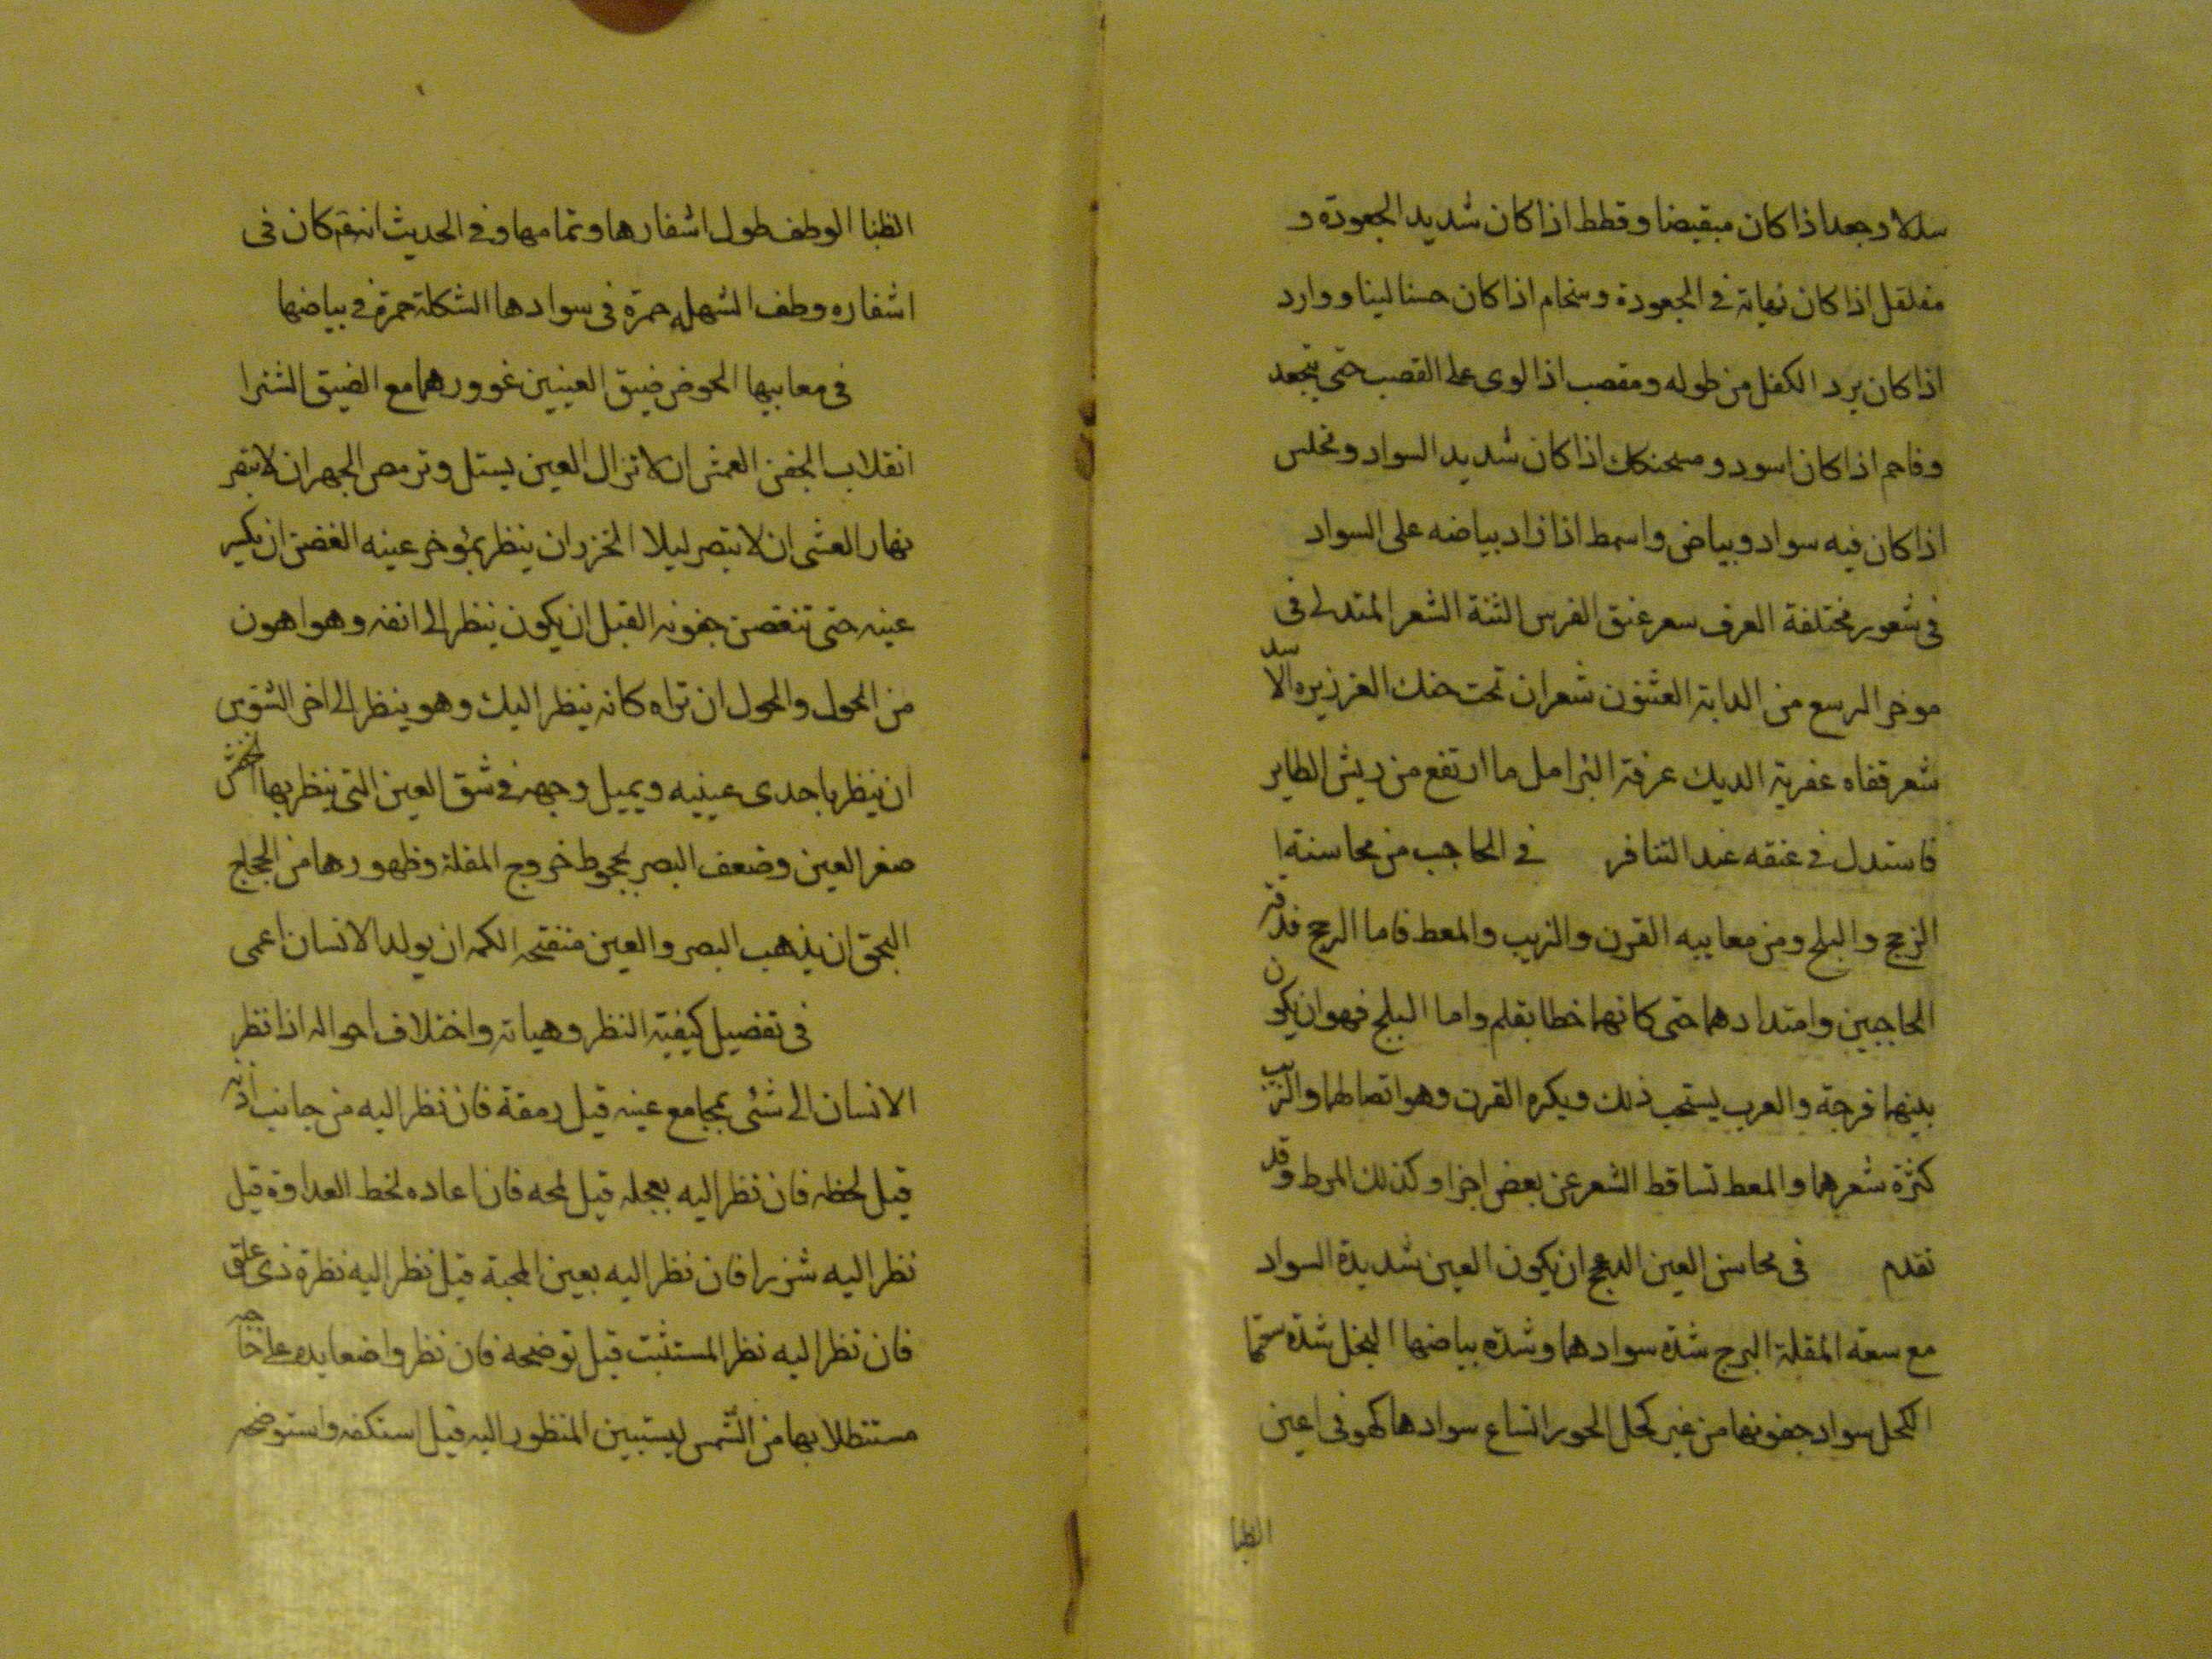 سدلا وجعدا اذا كان مبقيضا وقطط اذا كان شديد الجعودة و
مفلقل اذا كان نهاية في الجعودة وسخام اذا كان حسنا لينا ووارد
اذا كان يرد الكفل من طوله ومقصب اذا لوى على القصب حتى يتجعد
وفاحم اذا كان اسود ومسحنكك اذا كان شديد السواد ومخلس
اذا كان فيه سواد وبياض واسمط اذا زاد بياضه على السواد
في شعور مختلفة العرف سعر عنق الفرس الثنة الشعر المتدلي في
موخر الرسع من الدابة العشنون شعران تحت حنك العنز زبره الاسد
شعر قفاه عفرية الديك عرفة البرامل ما ارتفع من ريش الطاير
فاستدل في عنقه عند التنافر في الحاجب من محاسنة ا
الزجج والبلج ومن معاييه القرن والزبب والمعط فاما الرجج فدقة
الحاجبين وامتدادهما حتى كانهما خطا بقلم واما البلج فهو ان يكون
بينهما فرجة والعرب يستحب ذلك ويكره القرن وهو اتصالهما والزبب
كثرة شعرهما والمعط تساقط الشعر عن بعض اجزا وكذلك المرط وقد
تقدم في محاسن العين الدعج ان يكون العين شديدة السواد
مع سعة المقلة البرج شدة سوادها وشدة بياضها النجل شدة سعتها
الكحل سواد جفونها من غير كحل الحور اتساع سوادها كهو في اعين
الظبا
الظبا الوطف طول اشفارها وتمامها وفي الحديث انه كان في
اشفاره وطف الشهلة حمرة في سوادها الشكلة حمرة في بياضها
في معاييها الحوض ضيق العينين غوورهما مع الضيق الشترا
انقلاب الجفن العمش ان لا تزال العين يستل وترمص الجهر ان لا تبصر
نهار العشى ان لا تبصر ليلا الخزر ان ينظر بمؤخر عينه الغضن ان يكسر
عينه حتى تنغصن جفونه القبل ان يكون ينظر الى انفه وهو اهون
من الحول والحول ان تراه كانه ينظر اليك وهو ينظر الى اخر الشوس
ان ينظر باحدى عينيه ويميل وجهه في شق العين التي ينظر بها الخفش
صغر العين وضعف البصر الجحوظ خروج المقلة وظهورها من الحجاج
البحق ان يذهب البصر والعين منفتحه الكمه ان يولد الانسان اعمى
في تفصيل كيفية النظر وهياته واختلاف احواله اذا نظر
الانسان الى شئ بمجامع عينه قيل رمقة فان نظر اليه من جانب اذنه
قيل لحظه فان نظر اليه بعجله قيل لمحه فان اعاده لحظ العداوة قيل
نظر اليه شزرا فان نظر اليه بعين المحبة قيل نظر اليه نظرة ذي علق
فان نظر اليه نظر المستثبت قيل توضحه فان نظر واضعا يده على حاجبه
مستظلا بها من الشمس ليستبين المنظور اليه قيل استكفه واستوضحه